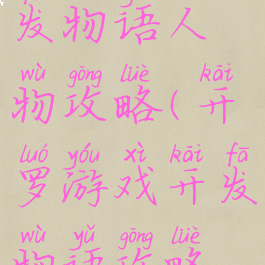 发物语人
wù gōng lüè kāi
物攻略(开
luó yóu xì kāi fā
罗游戏开发
wù yǔ gōng lüè
物语攻略